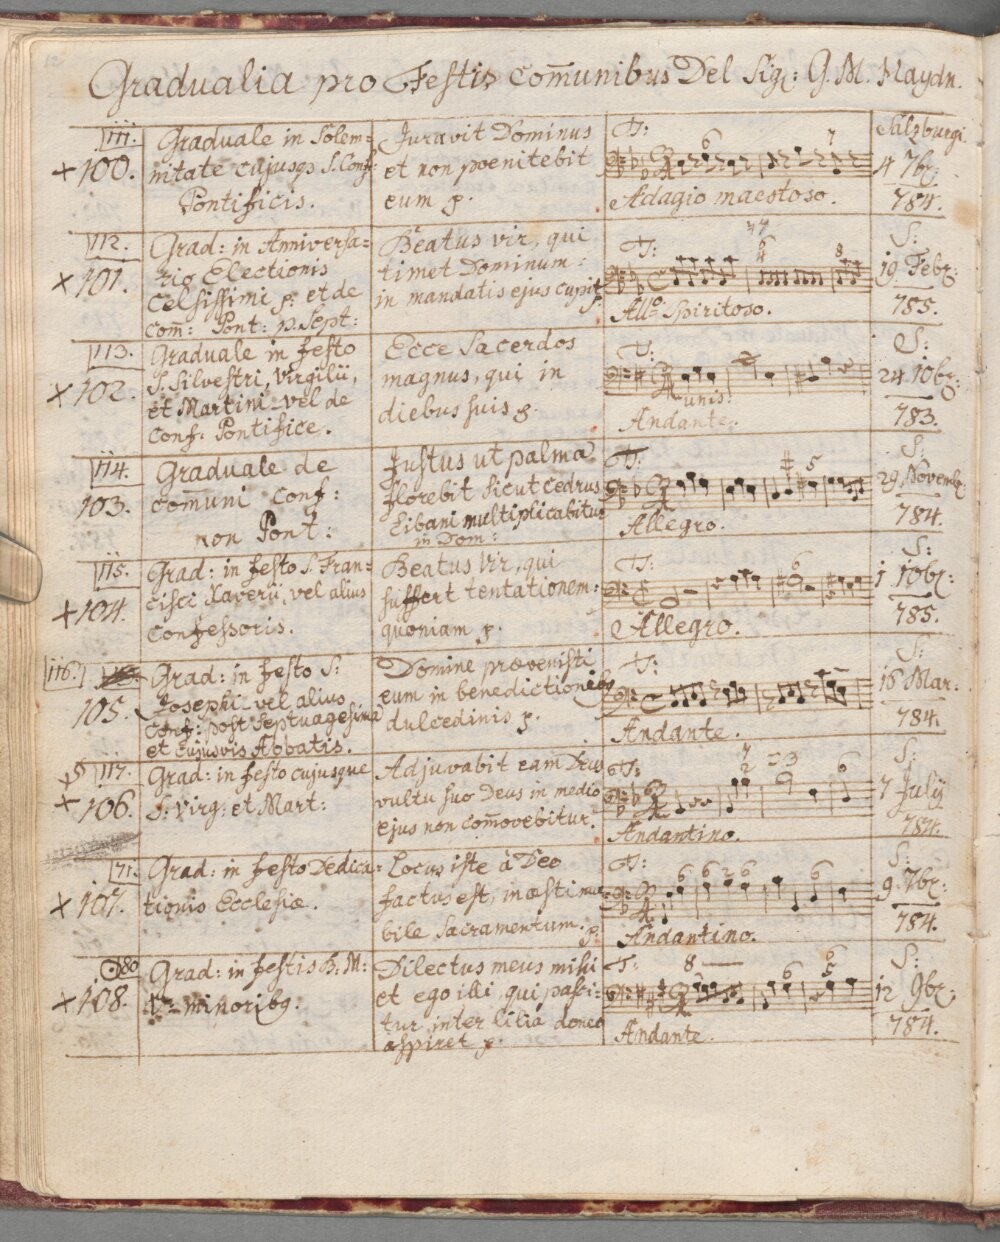 12
Gradualia pro Festis com̄unibus Del Sig: G. M. Haydn.
111.
×100.
Graduale in Solem=
nitate cujusqs S. Conf:
Pontificis.
Juravit Dominus
et non poenitebit
eum p.
T:
6 7
Adagio maestoso.
Salzburgi
4 7br:
784.
112.
×101.
Grad: in Anniversa=
rio Electionis
Celsissimi p: et de
Com: Pont: p. Sept:
Beatus vir, qui
timet Dominum:
in mandatis ejus cupit
p.
T:
6
4
8
All:o Spiritoso.
S:
19 Febr:
785.
113.
×102.
Graduale in festo
S. Silvestri, Virgilii,
et Martini vel de
Conf. Pontifice.
Ecce Sacerdos
magnus, qui in
diebus suis p
T:
unis:
Andante.
S:
24 10br:
783.
114.
103.
Graduale de
com̄uni Conf:
non Pont:
Justus ut palma
florebit sicut cedrus
Libani multiplicabitur
in Dom:
T:
# 5
Allegro.
S:
29 Novemb:
784.
115.
×104.
Grad: in festo S. Fran=
cisci Xaverii, vel alius
Confessoris.
Beatus Vir, qui
suffert tentationem:
quoniam p.
T:
6
Allegro.
S:
1 10br:
785.
116.
105.
Grad: in festo S:
Josephi vel alius
Conf: post Septuagesima
et cujusvis Abbatis.
Domine prævenisti
eum in benedictionibs
dulcedinis p.
T:
Andante.
S:
16 Mar:
784.
117.
×106.
Grad: in festo cujusque
S: Virg: et Mart:
Adjuvabit eam Deus
vultu suo Deus in medio
ejus non com̄ovebitur.
T:
7
2
6
Andantino.
S:
7 July
784.
71.
×107.
Grad: in festo Dedica=
tionis Ecclesiæ.
Locus iste à Deo
factus est, inæstima=
bile Sacramentum.
p.
T:
6 6 2 6
Andantino.
S:
9. 7br:
784.
80
×108.
Grad: in festis B: M:
V: minoribq.
Dilectus meus mihi
et ego illi, qui pasci=
tur inter lilia donec
aspiret p
T:
8
6
6
5
Andante.
S:
12 9br:
784.